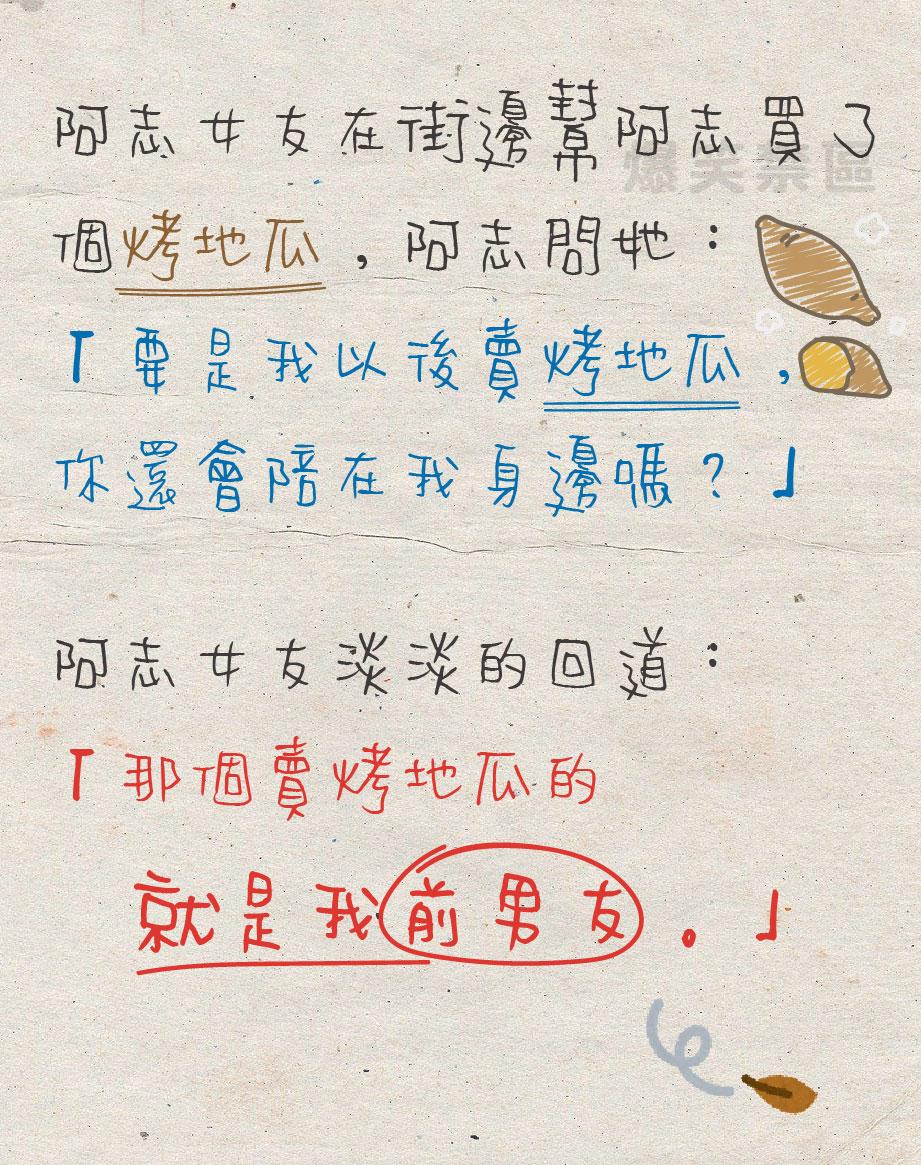 阿志女友在街邊幫阿志買了
爆笑禁區
個烤地瓜，阿志問她：
「要是我以後賣烤地瓜，
你還會陪在我身邊嗎？」
阿志女友淡淡的回道：
「那個賣烤地瓜的
就是我前男友。」